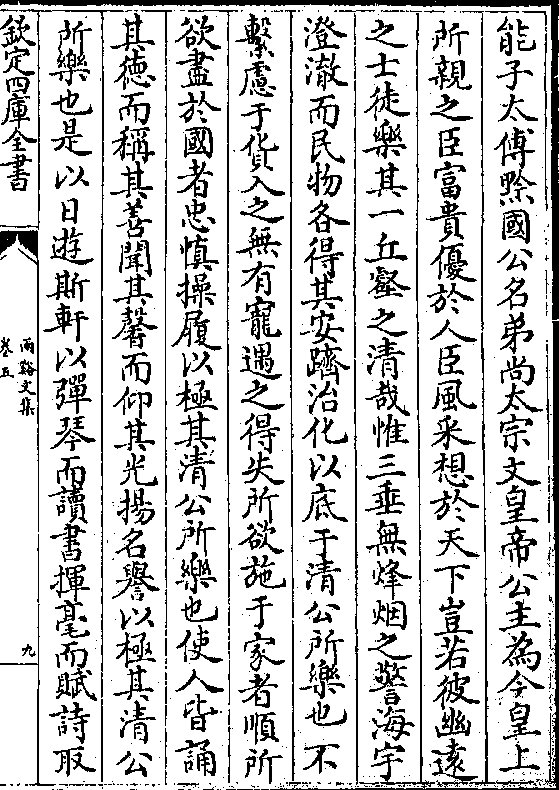 能子太傅黔國公名弟尚太宗文皇帝公主為今皇上
所親之臣富貴優於人臣風采想於天下豈若彼幽遠
之士徒樂其一丘壑之清哉惟三垂無烽烟之警海宇
澄澈而民物各得其安躋治化以底于清公所樂也不
繫慮于貨入之無有寵遇之得失所欲施于家者順所
欲盡於國者忠慎操履以極其清公所樂也使人皆誦
其徳而稱其善聞其馨而仰其光揚名譽以極其清公
所樂也是以日遊斯軒以彈琴而讀書揮毫而賦詩取
欽定四庫全書
兩谿文集
卷五
九